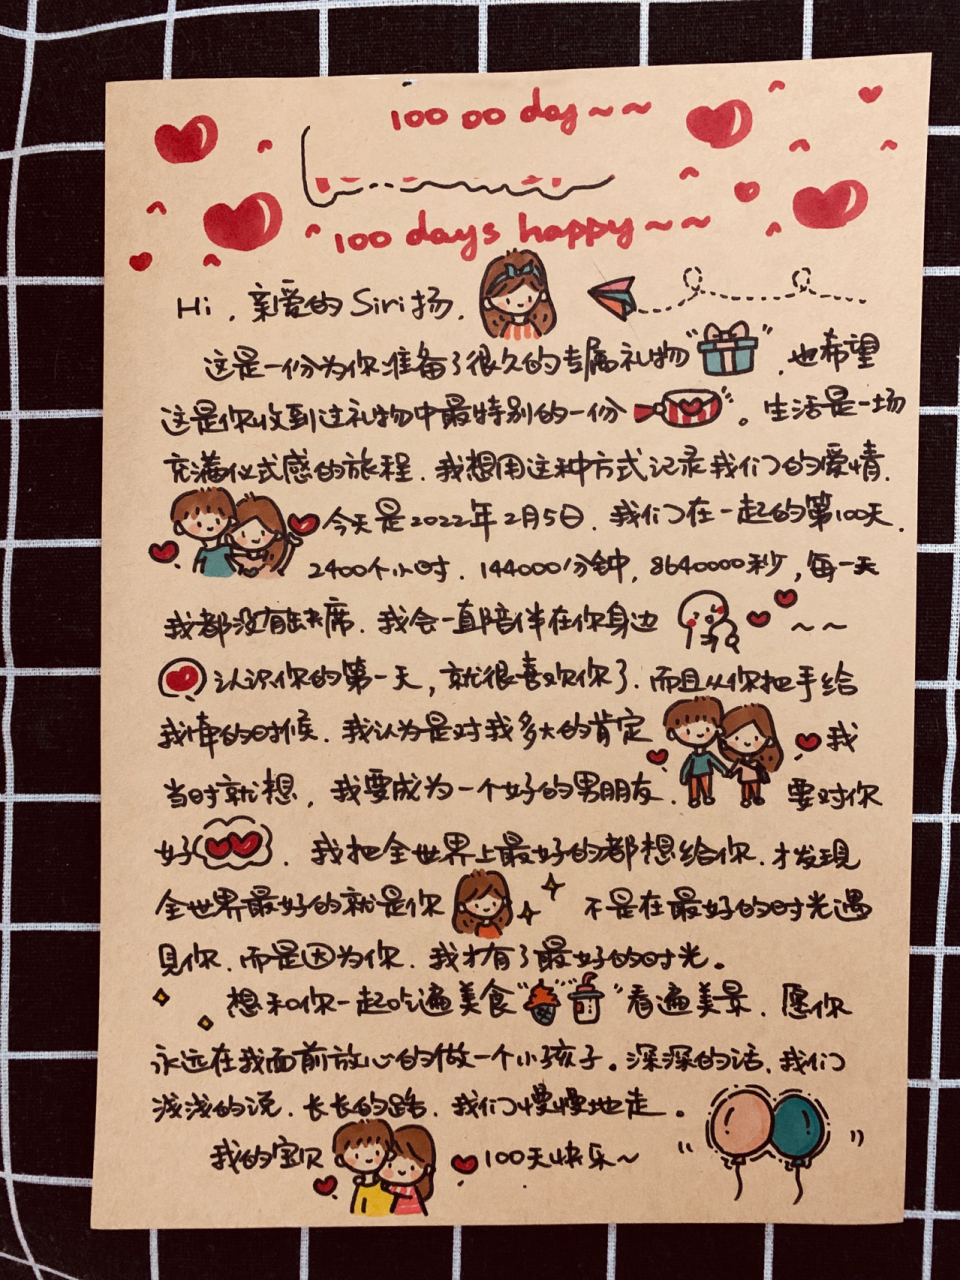 100 00 day~~
100 days happy~~
Hi，亲爱的Siri扬，
这是一份为你准备了很久的专属礼物"  "，也希望
这是你收到过礼物中最特别的一份  "。生活是一场
充满仪式感的旅程，我想用这种方式记录我们的爱情，
今天是2022年2月5日，我们在一起的第100天，
2400个小时，144000分钟，8640000秒，每一天
我都没有缺席，我会一直陪伴在你身边 ~~
认识你的第一天，就很喜欢你了，而且从你把手给
我牵的时候，我认为是对我多大的肯定 我
当时就想，我要成为一个好的男朋友， 要对你
好 ，我把全世界上最好的都想给你，才发现
全世界最好的就是你 不是在最好的时光遇
见你，而是因为你，我才有了最好的时光。
想和你一起吃遍美食"  "看遍美景，愿你
永远在我面前放心的做一个小孩子。深深的话，我们
浅浅的说，长长的路，我们慢慢地走。
我的宝贝 100天快乐~